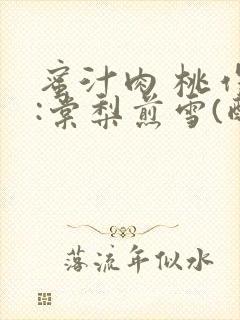 蜜汁肉桃
:棠梨煎雪(
落流年似水